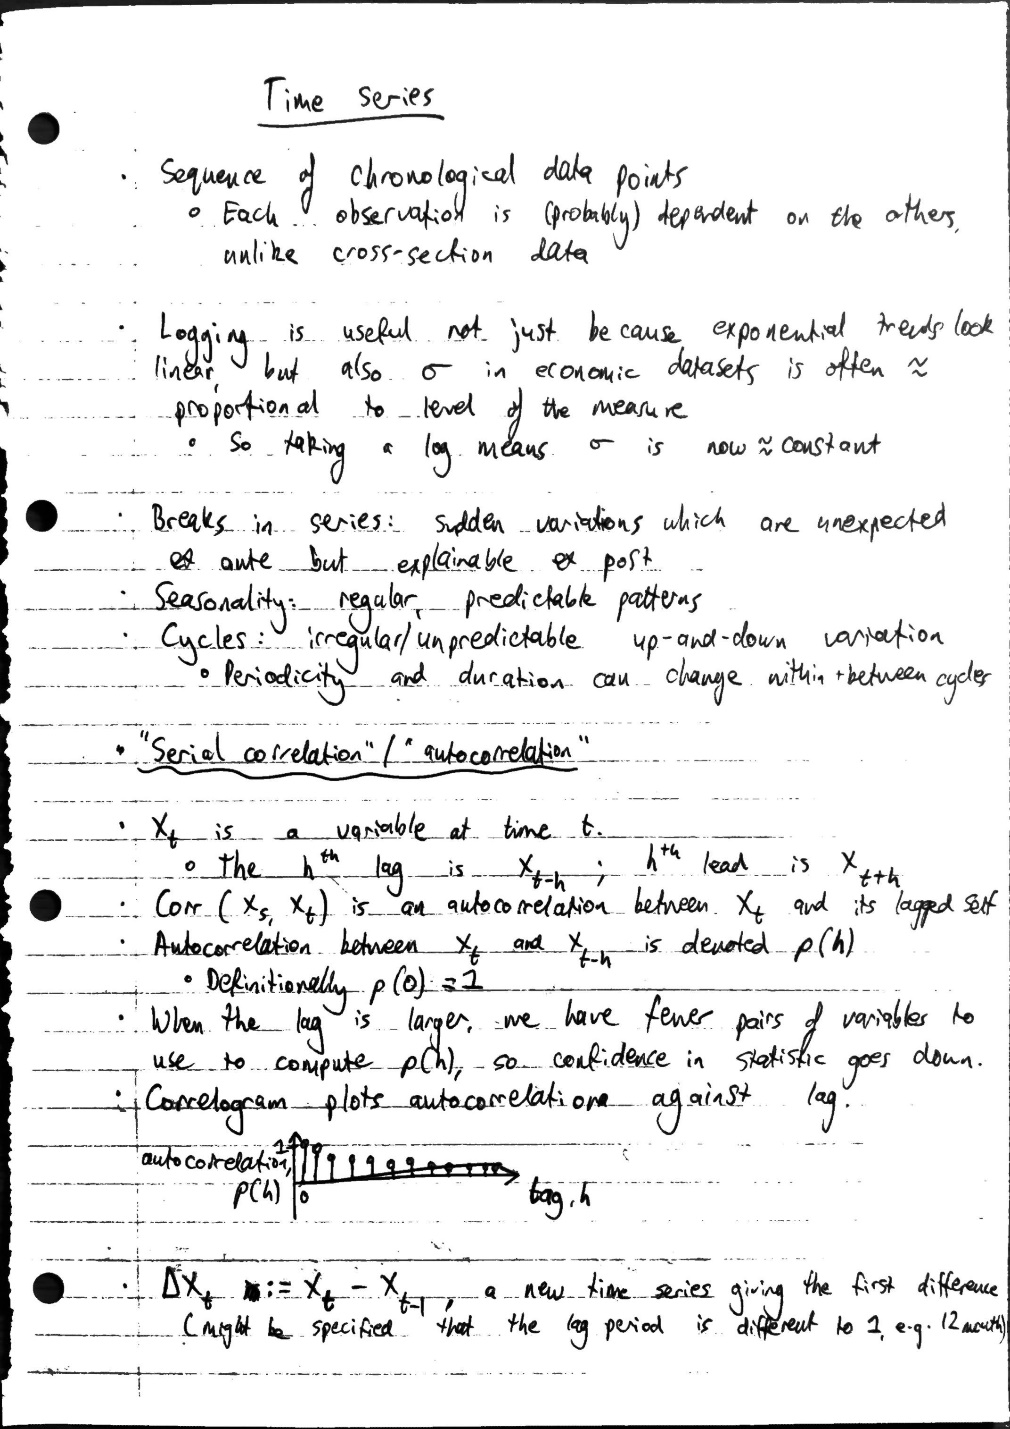 Time series
· Sequence of chronological data points
∘ Each observation is (probably) dependent on the others,
unlike cross-section data
· Logging is useful not just because exponential trends look
linear, but also σ in economic datasets is often ≈
proportional to level of the measure
∘ So taking a log means σ is now ≈ constant
· Breaks in series: sudden variations which are unexpected
ex ante but explainable ex post
· Seasonality: regular, predictable patterns
· Cycles: irregular/unpredictable up-and-down variation
∘ Periodicity and duration can change within + between cycles
· "Serial correlation" / "autocorrelation"
· X_t is a variable at time t.
∘ The h^th lag is X_{t-h} ; h^th lead is X_{t+h}
· Corr (X_s, X_t) is an autocorrelation between X_t and its lagged self
· Autocorrelation between X_t and X_{t-h} is denoted ρ(h)
∘ Definitionally ρ(0) = 1
· When the lag is larger, we have fewer pairs of variables to
use to compute ρ(h), so confidence in statistic goes down.
· Correlogram plots autocorrelations against lag.
1
autocorrelation,
ρ(h)
0
lag, h
· ΔX_t := X_t - X_{t-1}, a new time series giving the first difference
(might be specified that the lag period is different to 1, e.g. 12 month)